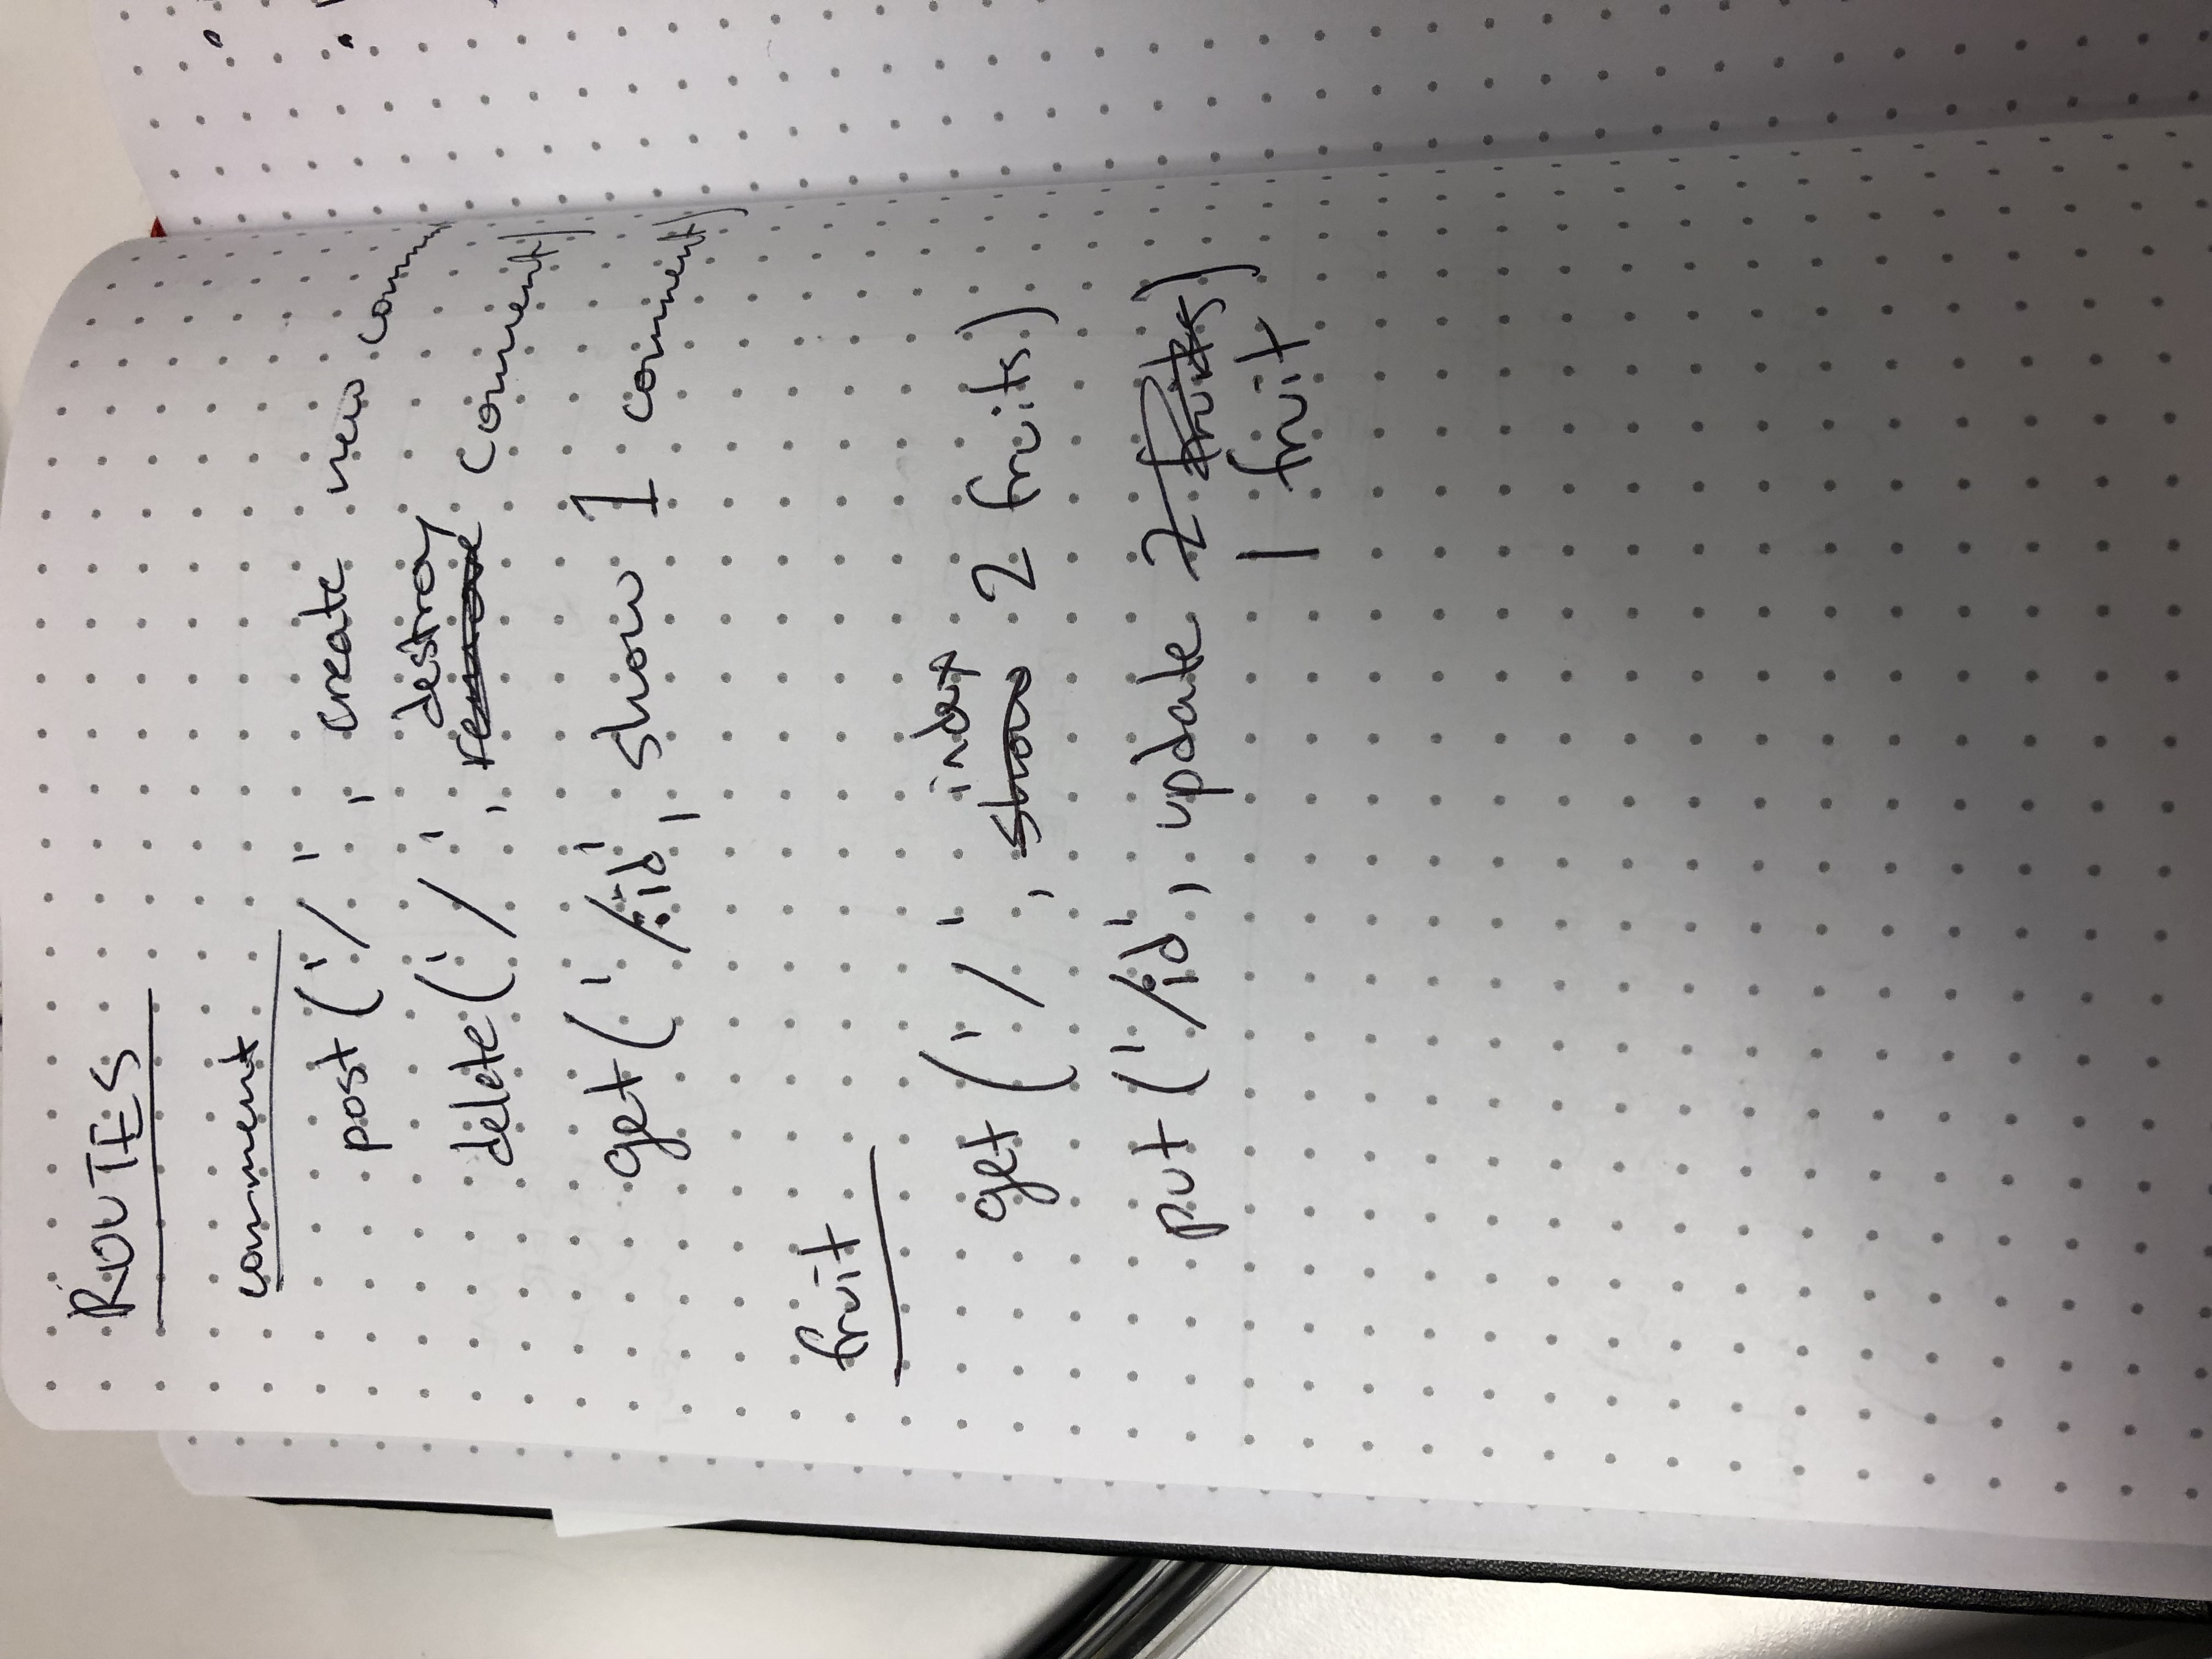 ROUTES
comment
post('/', create new comm
destroy
delete('/', remove comment)
get('/:id', show 1 comment)
fruit
index
get('/', show 2 fruits)
put('/id', update 2 fruits)
1 fruit